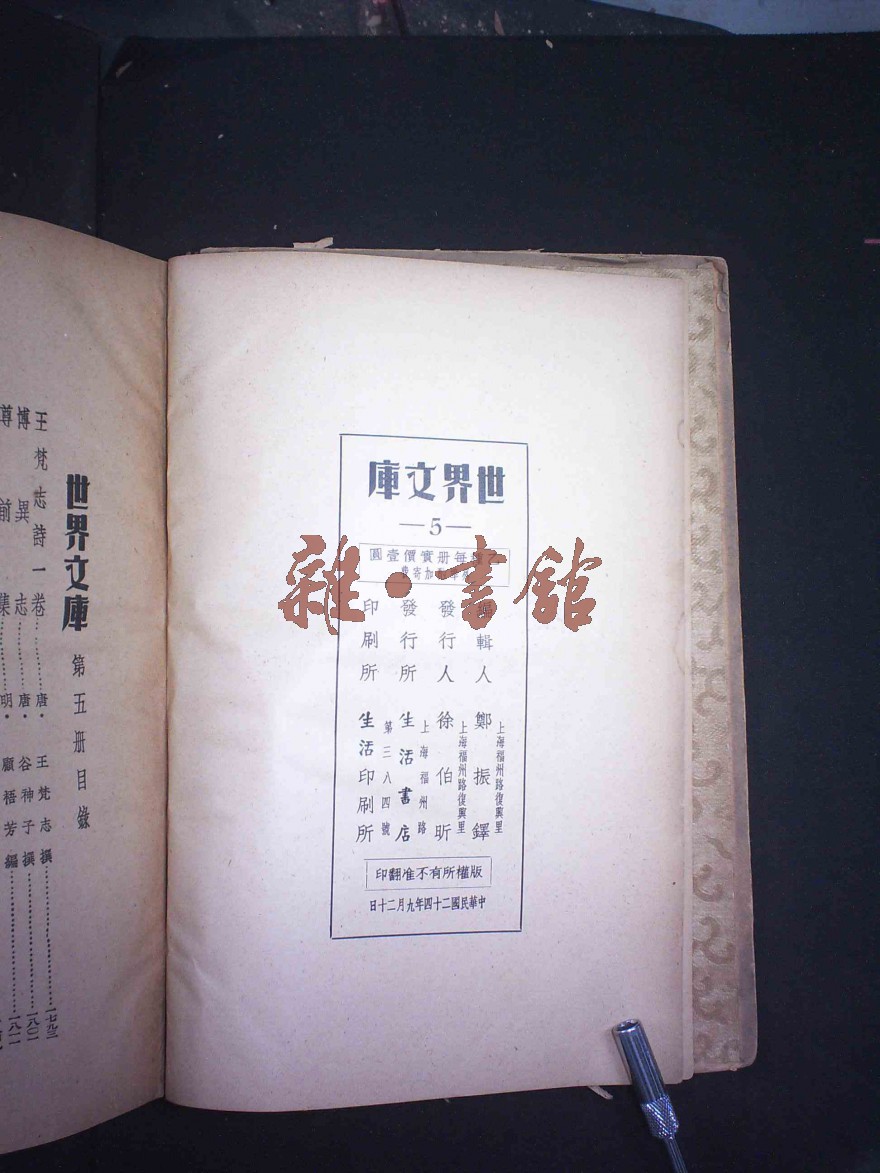 世界文庫
—5—
乙種每册實價壹圓
加寄費
編輯人 鄭振鐸
上海福州路復興里
發行人 徐伯昕
上海福州路復興里
發行所 生活書店
上海福州路
第三八四號
印刷所 生活印刷所
版權所有不准翻印
中華民國二十四年九月二十日
雜·書館
世界文庫 第五册目錄
王梵志詩一卷………唐·王梵志撰………一七九三
博異志………唐·谷神子撰………一八〇一
尊前集………明·顧梧芳編………一八一一